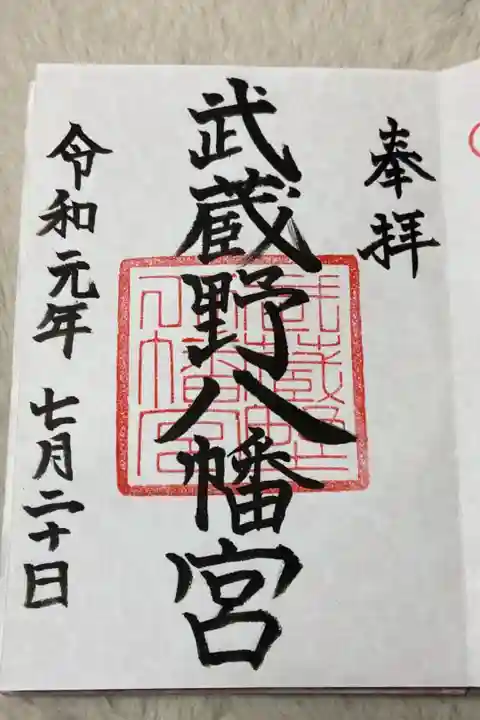 奉拝
武蔵野八幡宮
令和元年 七月二十日
武蔵野
八幡宮